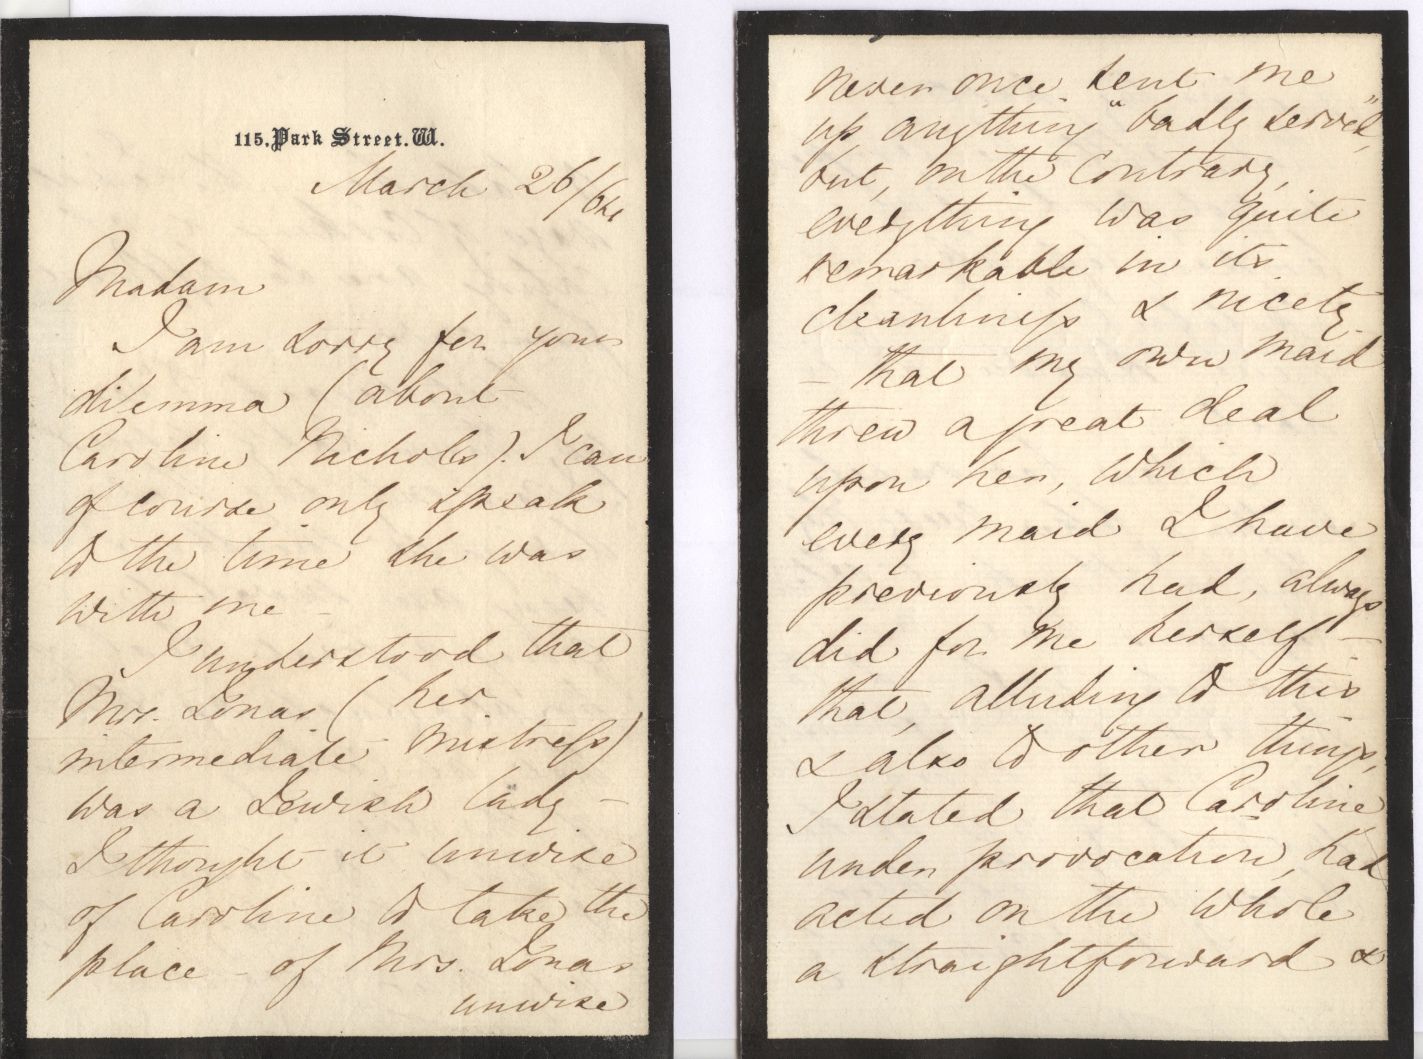 115. Park Street. W.
March 26/64
Madam
I am sorry for your
dilemma (about
Caroline Nicholls). I can
of course only speak
to the time she was
with me -
I understood that
Mrs. Jonas (her
intermediate mistress)
was a Jewish lady -
I thought it unwise
of Caroline to take the
place - of Mrs. Jonas
unwise
never once sent me
up anything "badly served",
but, on the contrary,
everything was quite
remarkable in its
cleanliness & nicety
- that my own maid
threw a great deal
upon her, which
every maid I have
previously had, always
did for me herself -
that, alluding to this
& also to other things,
I stated that Caroline,
under provocation, had
acted on the whole
a straightforward &